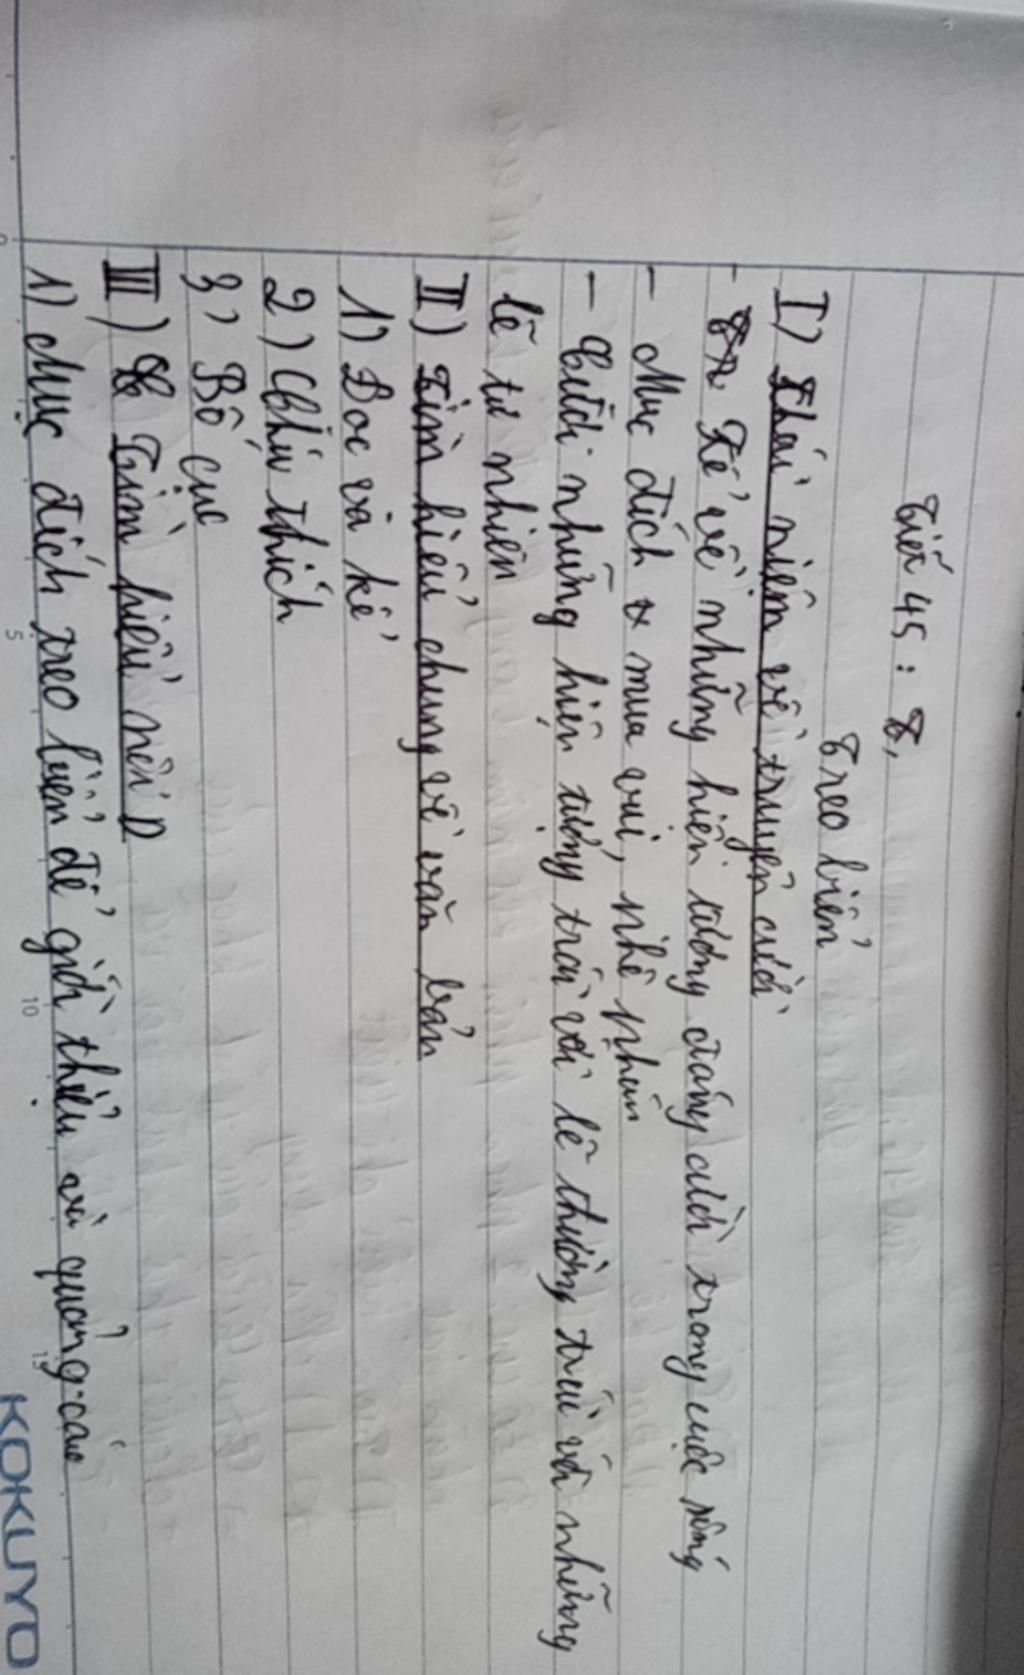 Tiết 45:
Treo biển
I) Khái niệm về truyện cười
- Kể về những hiện tượng đáng cười trong cuộc sống
- Mục đích mua vui, phê phán
- Cười những hiện tượng trái với lẽ thường, trái với những
lẽ tự nhiên
II) Tìm hiểu chung về văn bản
1) Đọc và kể
2) Chú thích
3) Bố cục
III) Tìm hiểu
1) Mục đích treo biển để giới thiệu và quảng cáo
5
10
15
KOKUYO